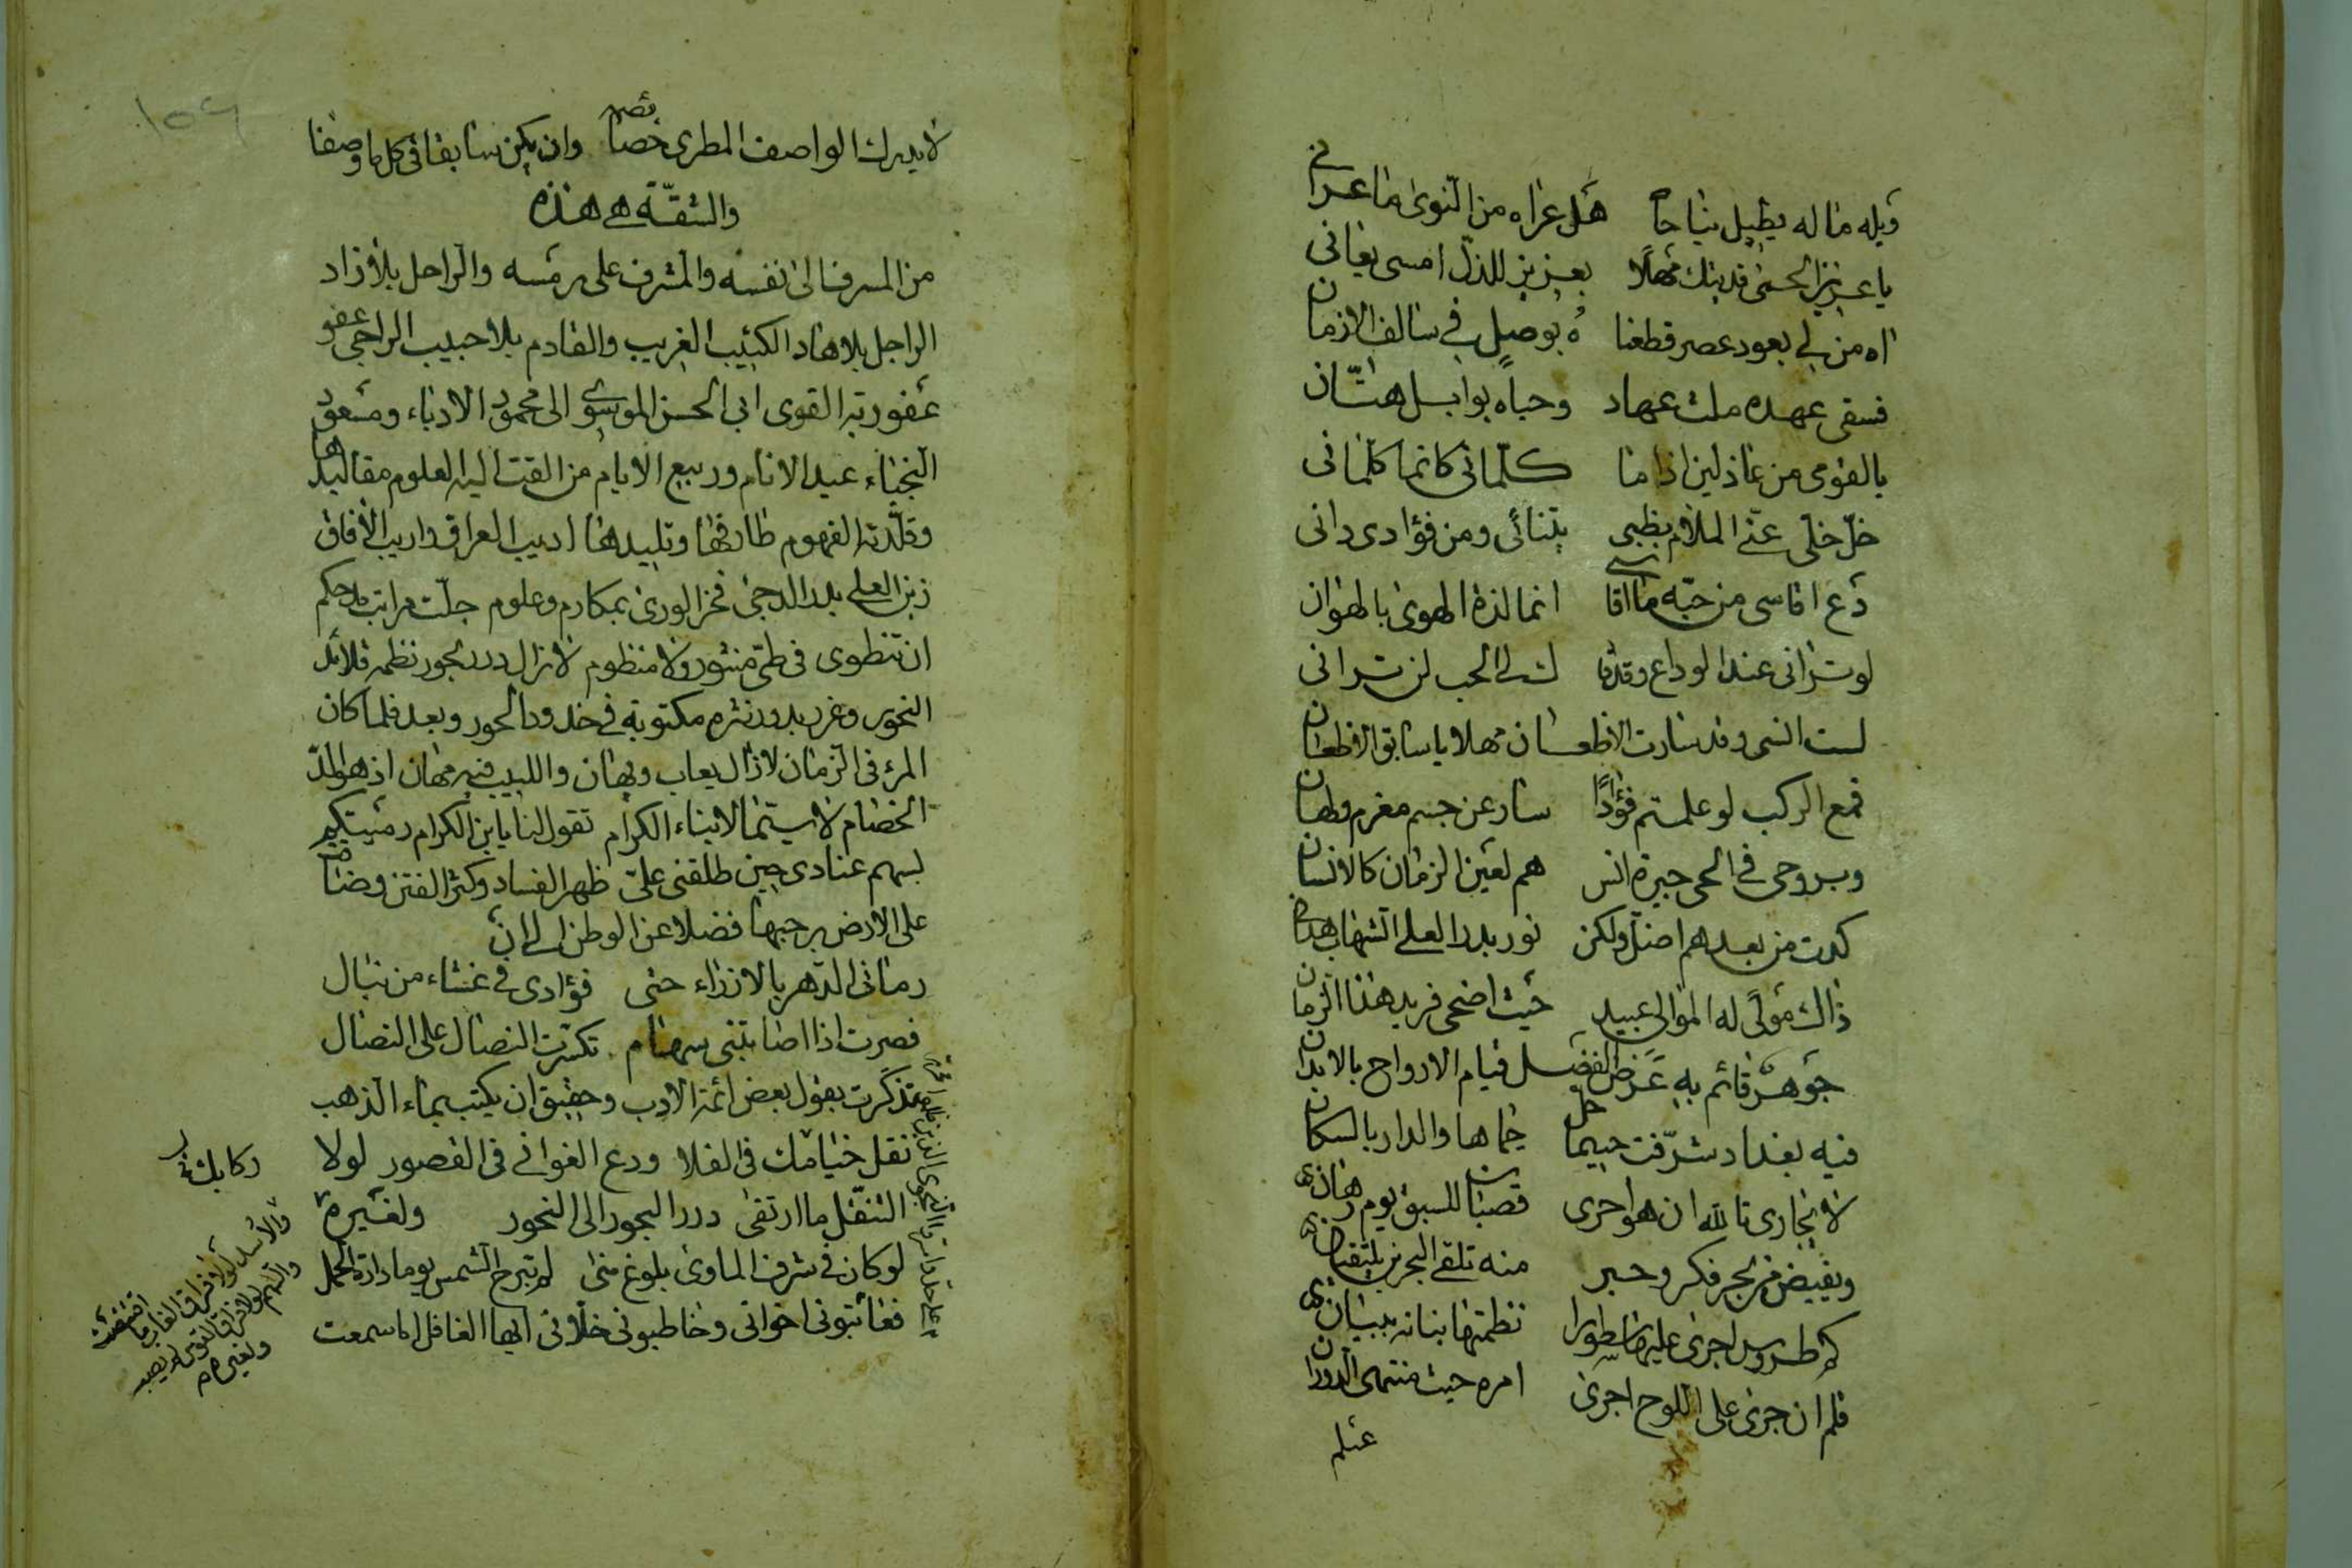 ويله ما له يطيل نياحا هل عراه من النوى ما عراني
يا عزيز الحمى فديتك مهلا بعزيز للذل امسى يعاني
اه من لي بعود عصر قطعنا ه بوصل في سالف الازمان
فسقى عهده ملث عهاد وحباه بوابل هتان
يالقومي من عاذلين اذا ما كلماني كانما كلماني
خل خلي عني الملام بظبي يتنائى ومن فؤادي داني
دع اقاسي من حبه ما اقاسي انما لذة الهوى بالهوان
لو تراني عند الوداع وقد قا لت لي الحب لن تراني
لست انسى وقد سارت الاظعان مهلا يا سابق الاظعان
فمع الركب لو علمتم فؤادًا سار عن جسم مغرم ولهان
وبروحي في الحي جيرة انس هم لعين الزمان كالانسان
كدت من بعدهم اضل ولكن نور بدر العلى الشهاب هداني
ذاك مولًى له الموالي عبيد حيث اضحى فريد هذا الزمان
جوهر قائم به عرض الفضل قيام الارواح بالابدان
فيه بغداد شرفت حيثما حل حماها والدار بالسكان
لا يجارى تالله ان هو اجرى قصبات للسبق يوم رهان
ويفيض من بحر فكر وحبر منه تلقى البحرين يلتقيان
كم طروس اجرى عليها سطورا نظمتها بنانه ببيان
قلم ان جرى على اللوح اجرى امره حيث منتهى الدوران
لا يدرك الواصف المطري خصائصه وان يكن سابقا في كل ما وصفا
والشقة هي هذه
من المسرف الى نفسه والمشرف على رمسه والراحل بلا زاد
الراجل بلا هاد الكئيب الغريب والقادم بلا حبيب الراجي عفو
عفو ربه القوي ابي الحسن الموسوي الى محمود الادباء ومسعود
النجباء عيد الانام وربيع الايام من القت اليه العلوم مقاليدها
وقلدته الفهوم طارفها وتليدها اديب العراق واريب الافاق
زين العلى بدر الدجى فخر الورى بمكارم وعلوم جلت مراتب مدحكم
ان تنطوي في طي منثور ولا منظوم لا زال درر بحور نظمه قلائد
النحور وغرر بدور نثره مكتوبة في خدود الحور وبعد فلما كان
المرء في الزمان لا زال يعاب ويهان واللبيب فيه مهان اذ هو الد
الخصام لا سيما لابناء الكرام تقول لنا يا ابن الكرام رميتكم
بسهم عنادي حين طلقني علي ظهر الفساد وكثر الفتن وضاقت
على الارض برحبها فضلا عن الوطن الى ان
رماني الدهر بالارزاء حتى فؤادي في غشاء من نبال
فصرت اذا اصابتني سهام تكسرت النصال على النصال
فتذكرت بقول بعض ائمة الادب وحقيق ان يكتب بماء الذهب
نقل خيامك في الفلا ودع الغواني في القصور لولا
التنقل ما ارتقى درر البحور الى النحور ولغيره
لو كان في شرف الماوى بلوغ منى لم تبرح الشمس يوما دارة الحمل
فعاتبوني اخواني وخاطبوني خلاني ايها الغافل اما سمعت
ركابك
والاسد لولا فراق الغاب ما افترست
والسهم لولا فراق القوس لم يصب
ولغيره